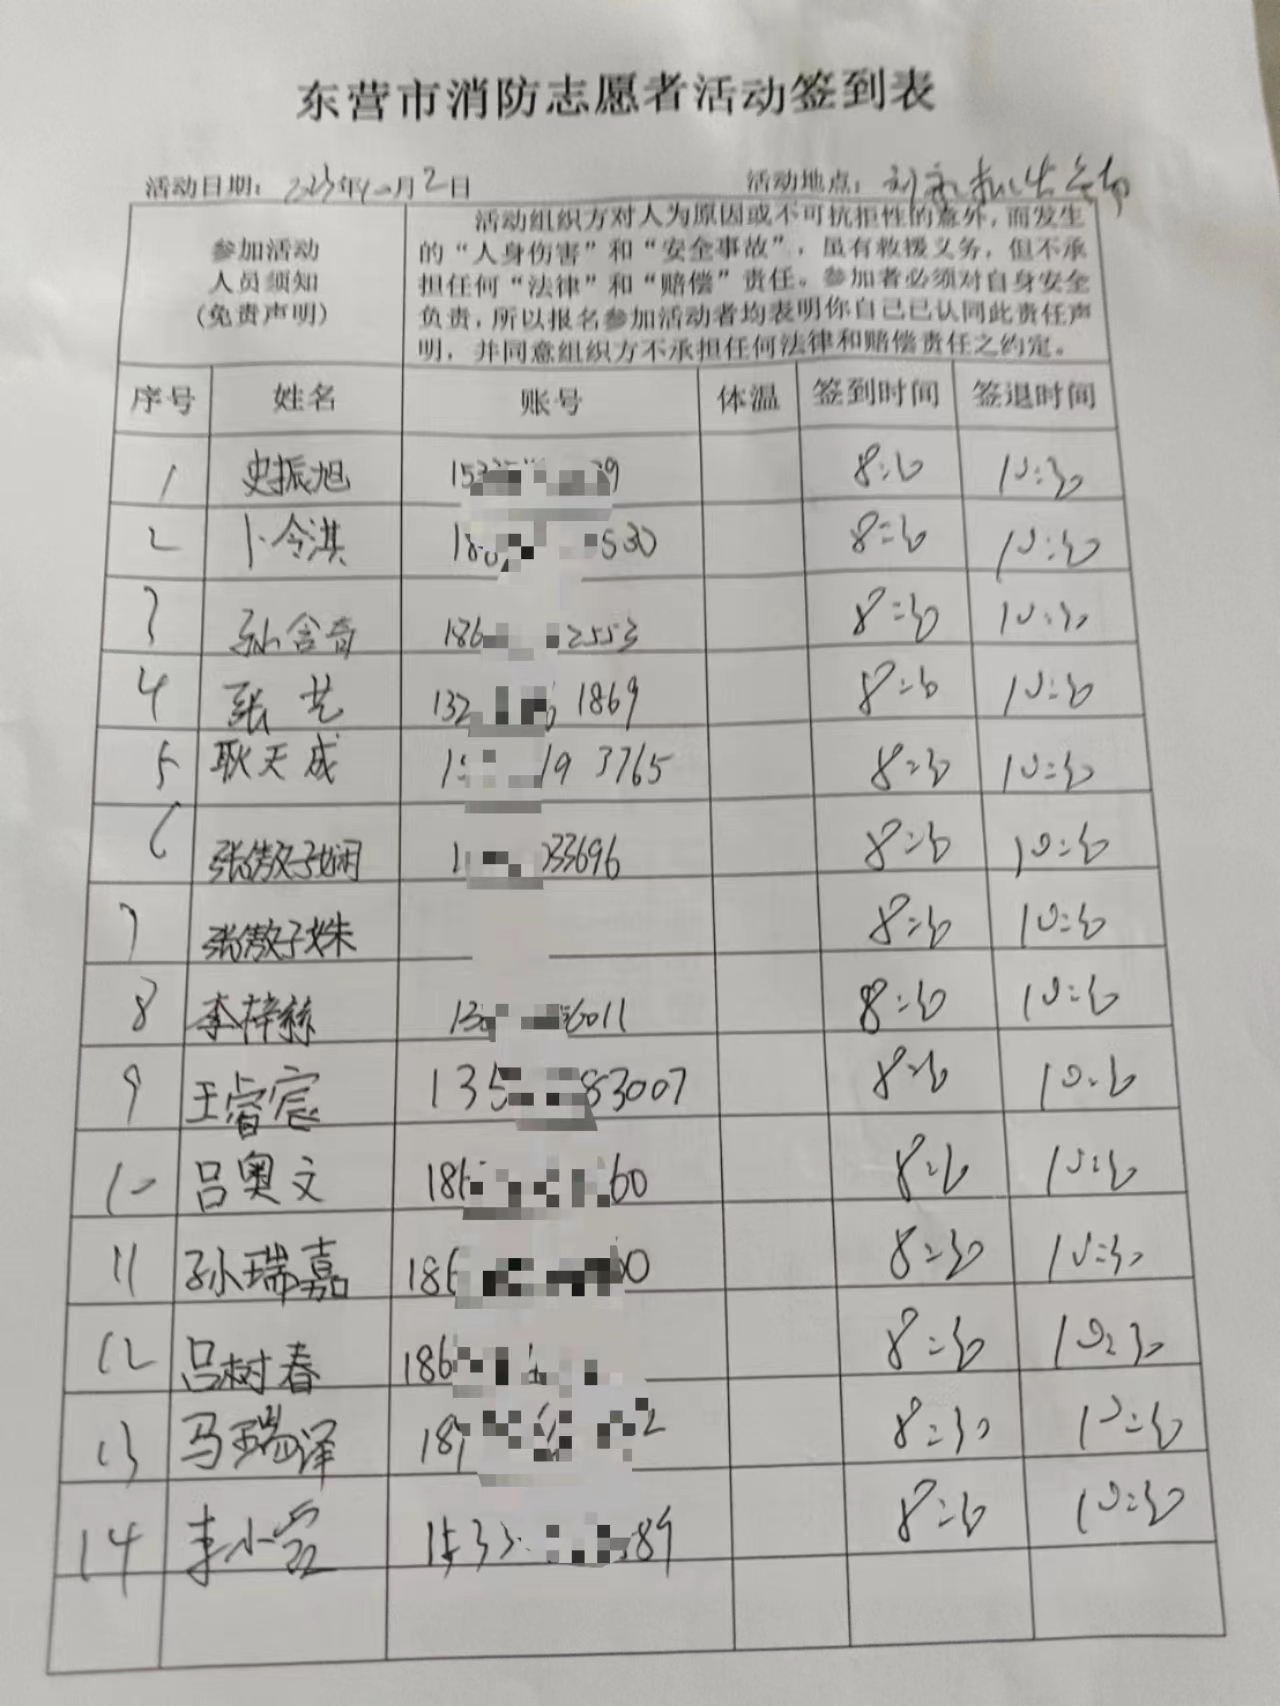 东营市消防志愿者活动签到表
活动日期：2023年10月2日 活动地点：
参加活动
人员须知
（免责声明）
活动组织方对人为原因或不可抗拒性的意外，而发生
的“人身伤害”和“安全事故”，虽有救援义务，但不承
担任何“法律”和“赔偿”责任。参加者必须对自身安全
负责，所以报名参加活动者均表明你自己已认同此责任声
明，并同意组织方不承担任何法律和赔偿责任之约定。
序号 姓名 账号 体温 签到时间 签退时间
1 史振旭 153 39 8:30 10:30
2 卜令淇 18 530 8:30 10:30
3 孙含音 186 2553 8:30 10:30
4 张艺 132 1869 8:30 10:30
5 耿天成 1 19 3765 8:30 10:30
6 张傲子娴 1 33696 8:30 10:30
7 张傲子姝 8:30 10:30
8 李梓 13 6011 8:30 10:30
9 王睿宸 135 83007 8:30 10:30
10 吕奥文 186 60 8:30 10:30
11 孙瑞嘉 186 0 8:30 10:30
12 吕树春 186 8:30 10:30
13 马瑞译 189 2 8:30 10:30
14 李小 1533 89 8:30 10:30